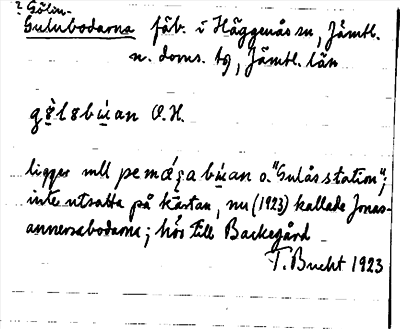 ? Gölun-
Gulubodarna fäb. i Häggenås sn, Jämtl.
n. doms. tg, Jämtl. län
O.H.
ligger mll pe o. "Gulås station";
inte utsatta på kartan, nu (1923) kallade Jonas-
annersabodarna; hör till Backegård
T. Bucht 1923